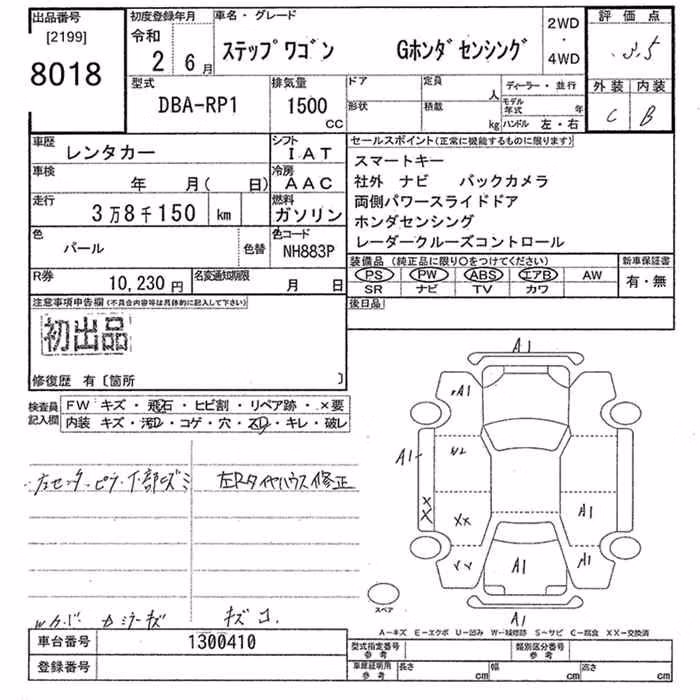 出品番号 初度登録年月 車名・グレード 2WD・4WD 評価点
[2199] 令和 2年 6月 ステップワゴン Gホンダセンシング 3.5
8018
型式 排気量 ドア 定員 人 ディーラー・並行 外装 内装
DBA-RP1 1500 CC 形状 積載 kg モデル年式 年 C B
ハンドル 左・右
車歴 レンタカー シフト IAT セールスポイント(正常に機能するものに限ります)
車検 年 月( 日) 冷房 AAC スマートキー
社外 ナビ バックカメラ
走行 3万8千150 km 燃料 ガソリン 両側パワースライドドア
ホンダセンシング
色 パール 色替 色コード NH883P レーダークルーズコントロール
装備品 (純正品に限り○をつけてください) 新車保証書
PS PW ABS エアB AW 有・無
SR ナビ TV カワ
R券 10,230円 名変通知期限 月 日
後日品
注意事項申告欄(不具合内容等は具体的に記入して下さい)
初出品
修復歴 有〔箇所 〕
検査員記入欄 FW キズ・飛石・ヒビ割・リペア跡・×要
内装 キズ・汚レ・コゲ・穴・スレ・キレ・破レ
A1
A1
A1
XX
A1
A1
A1
A1
左Rタイヤハウス修正
スペア
A-キズ E-エクボ U-凹み W-補修跡 S-サビ C-腐食 XX-交換済
車台番号 1300410
登録番号
型式指定番号 参考 類別区分番号 参考
車庫証明用 参考 長さ cm 幅 cm 高さ cm